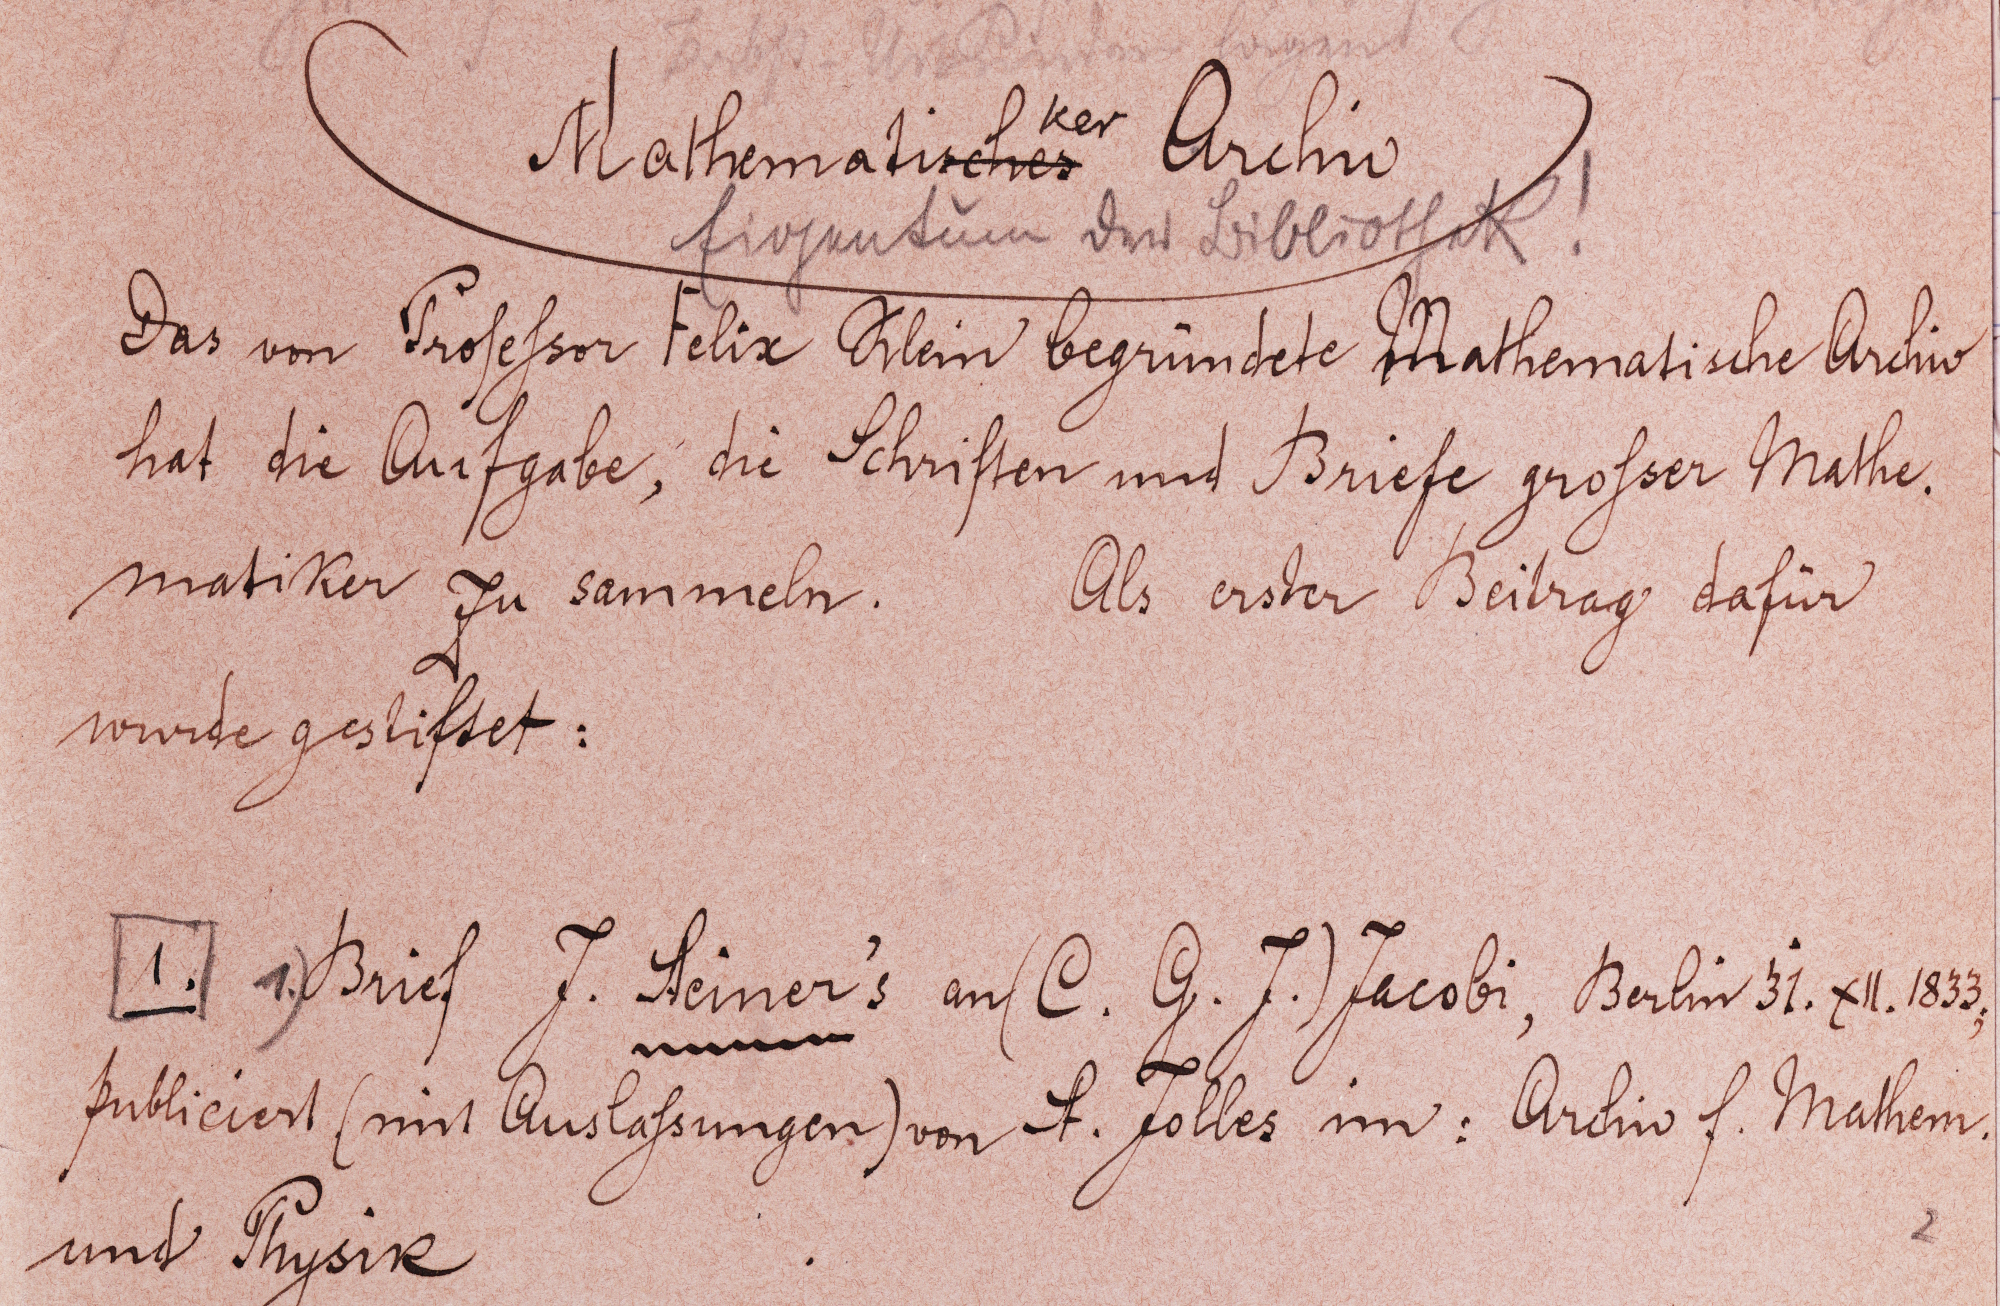 Mathematisches ker Archiv
Eigentum der Bibliothek!
Das von Professor Felix Klein begründete Mathematische Archiv
hat die Aufgabe, die Schriften und Briefe grosser Mathe-
matiker zu sammeln. Als erster Beitrag dafür
wurde gestiftet:
1. 1.) Brief J. Steiner's an (C. G. J.) Jacobi, Berlin 31. XII. 1833;
publiciert (mit Auslassungen) von St. Jolles im: Archiv f. Mathem.
und Physik
2